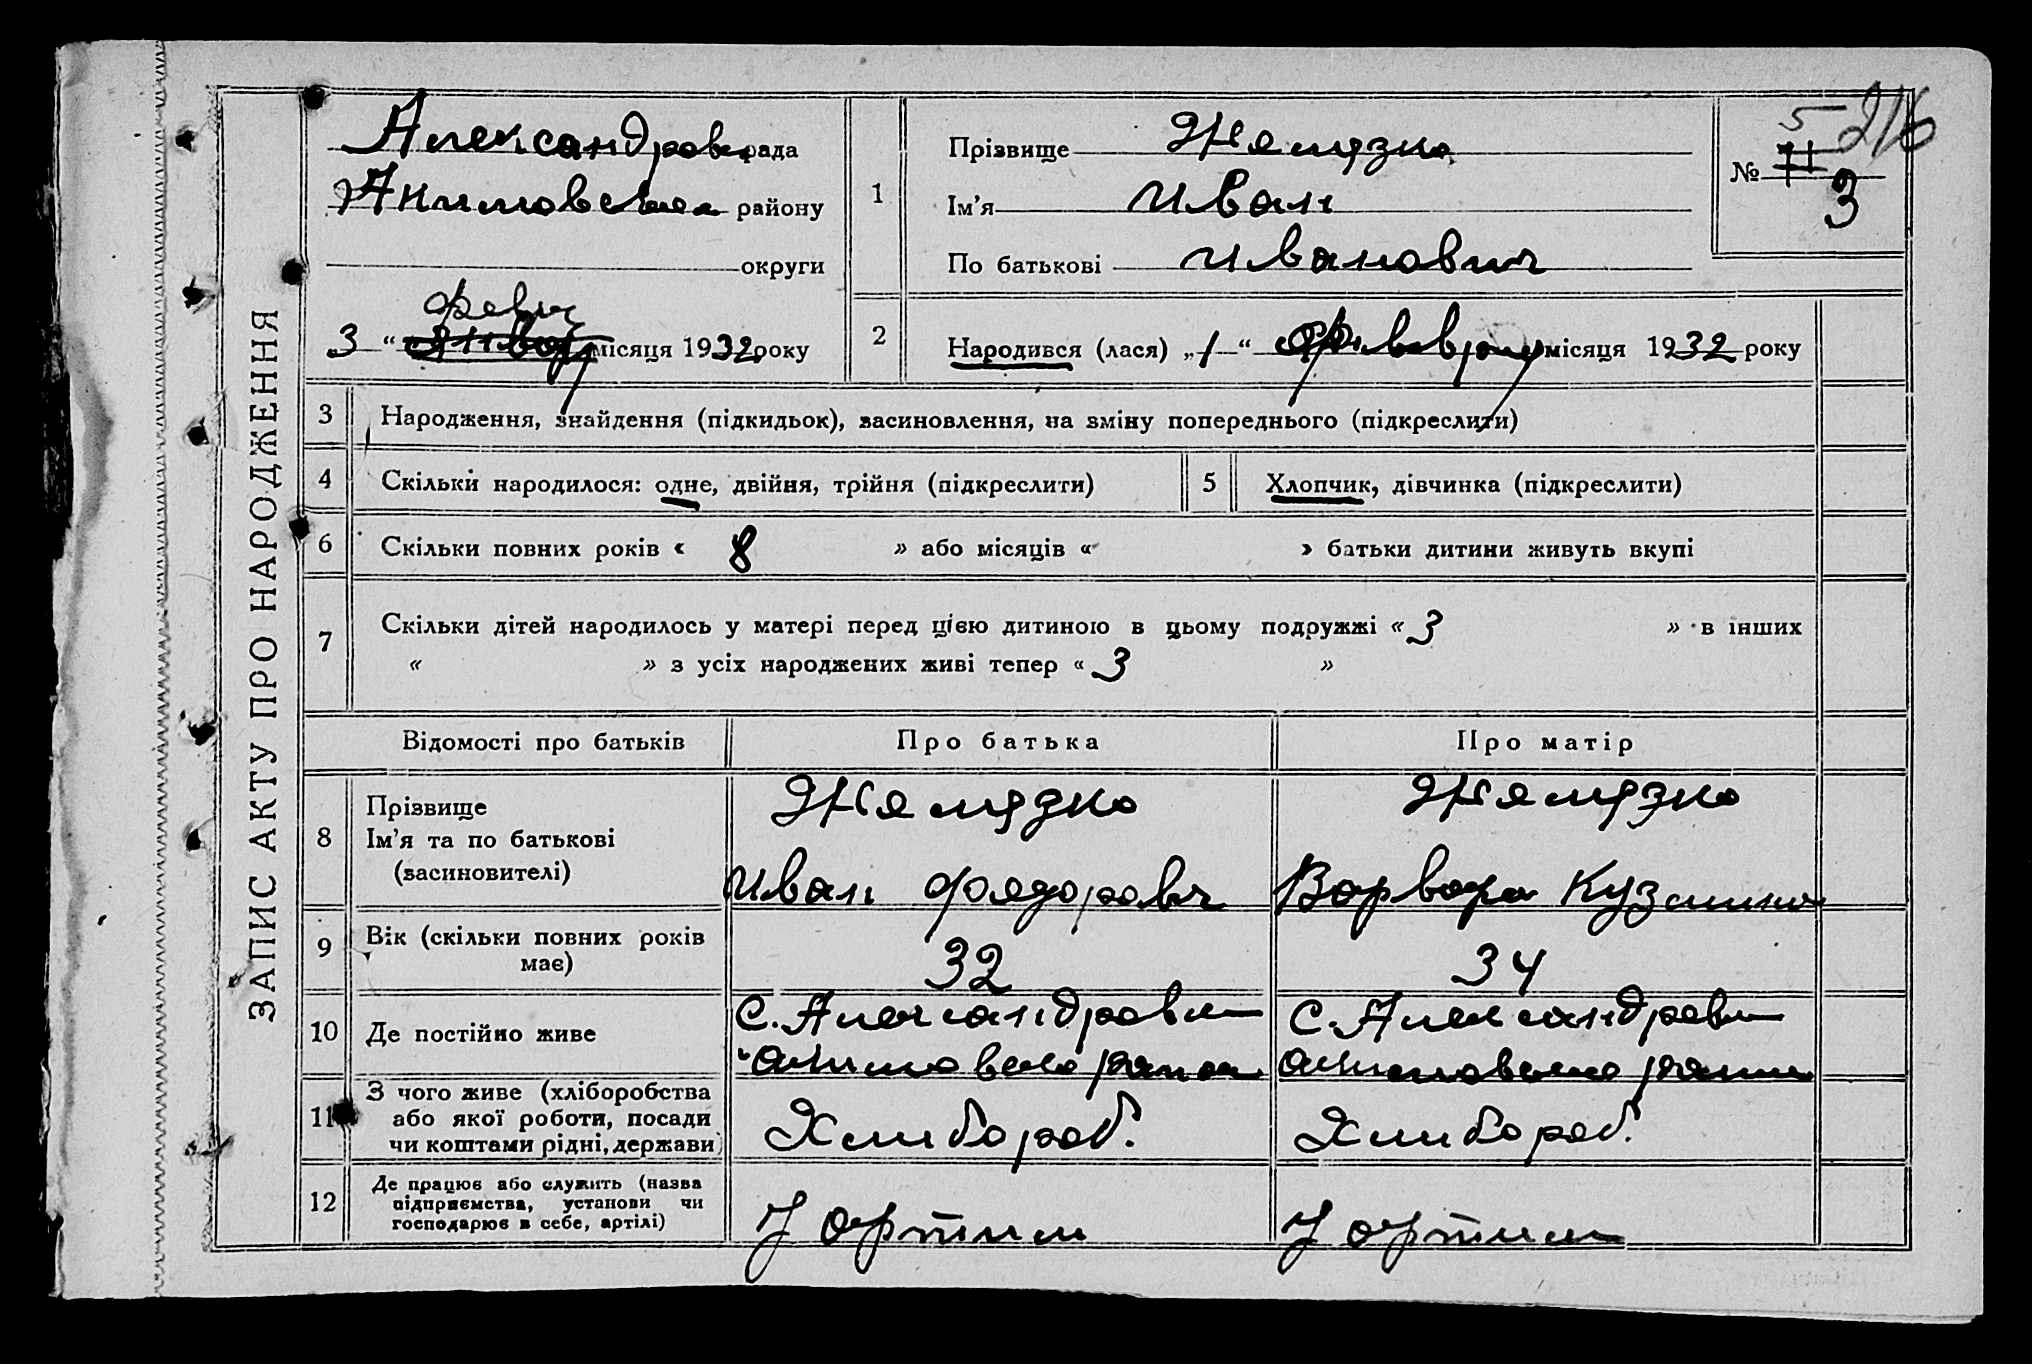 ЗАПИС АКТУ ПРО НАРОДЖЕННЯ
Александровка рада
району
округи
3 " февр місяця 1932 року
1
Прізвище
Ім'я Иван
По батькові Иванович
5 216
№ 3
2
Народився (лася) „1“ февраля місяця 1932 року
3 Народження, знайдення (підкидьок), засиновлення, на зміну попереднього (підкреслити)
4 Скільки народилося: одне, двійня, трійня (підкреслити) 5 Хлопчик, дівчинка (підкреслити)
6 Скільки повних років « 8 » або місяців « » батьки дитини живуть вкупі
7 Скільки дітей народилось у матері перед цією дитиною в цьому подружжі « 3 » в інших
« » з усіх народжених живі тепер « 3 »
Відомості про батьків Про батька Про матір
8 Прізвище
Ім'я та по батькові
(засиновителі)
Иван Фядорович Варвара Кузминична
9 Вік (скільки повних років
має) 32 34
10 Де постійно живе
с. Александровка с. Александровка
11 З чого живе (хліборобства
або якої роботи, посади
чи коштами рідні, держави)
Хлибороб. Хлибороб.
12 Де працює або служить (назва
підприємства, установи чи
господарює в себе, артілі)
У артили У артили